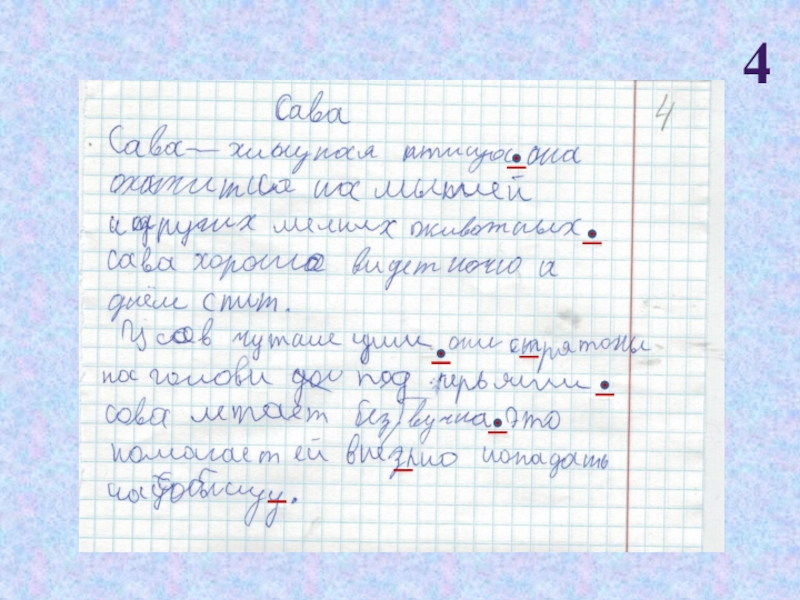 4
Сава
4
Сава — хищная птица. она
охотитса на мышей
и других мелких животных.
сава хорошо видет ночю а
днём спит.
У сов они
на голови под перьями.
сова летает без звучна. Это
помагает ей внезпно нападать
на добыцу.